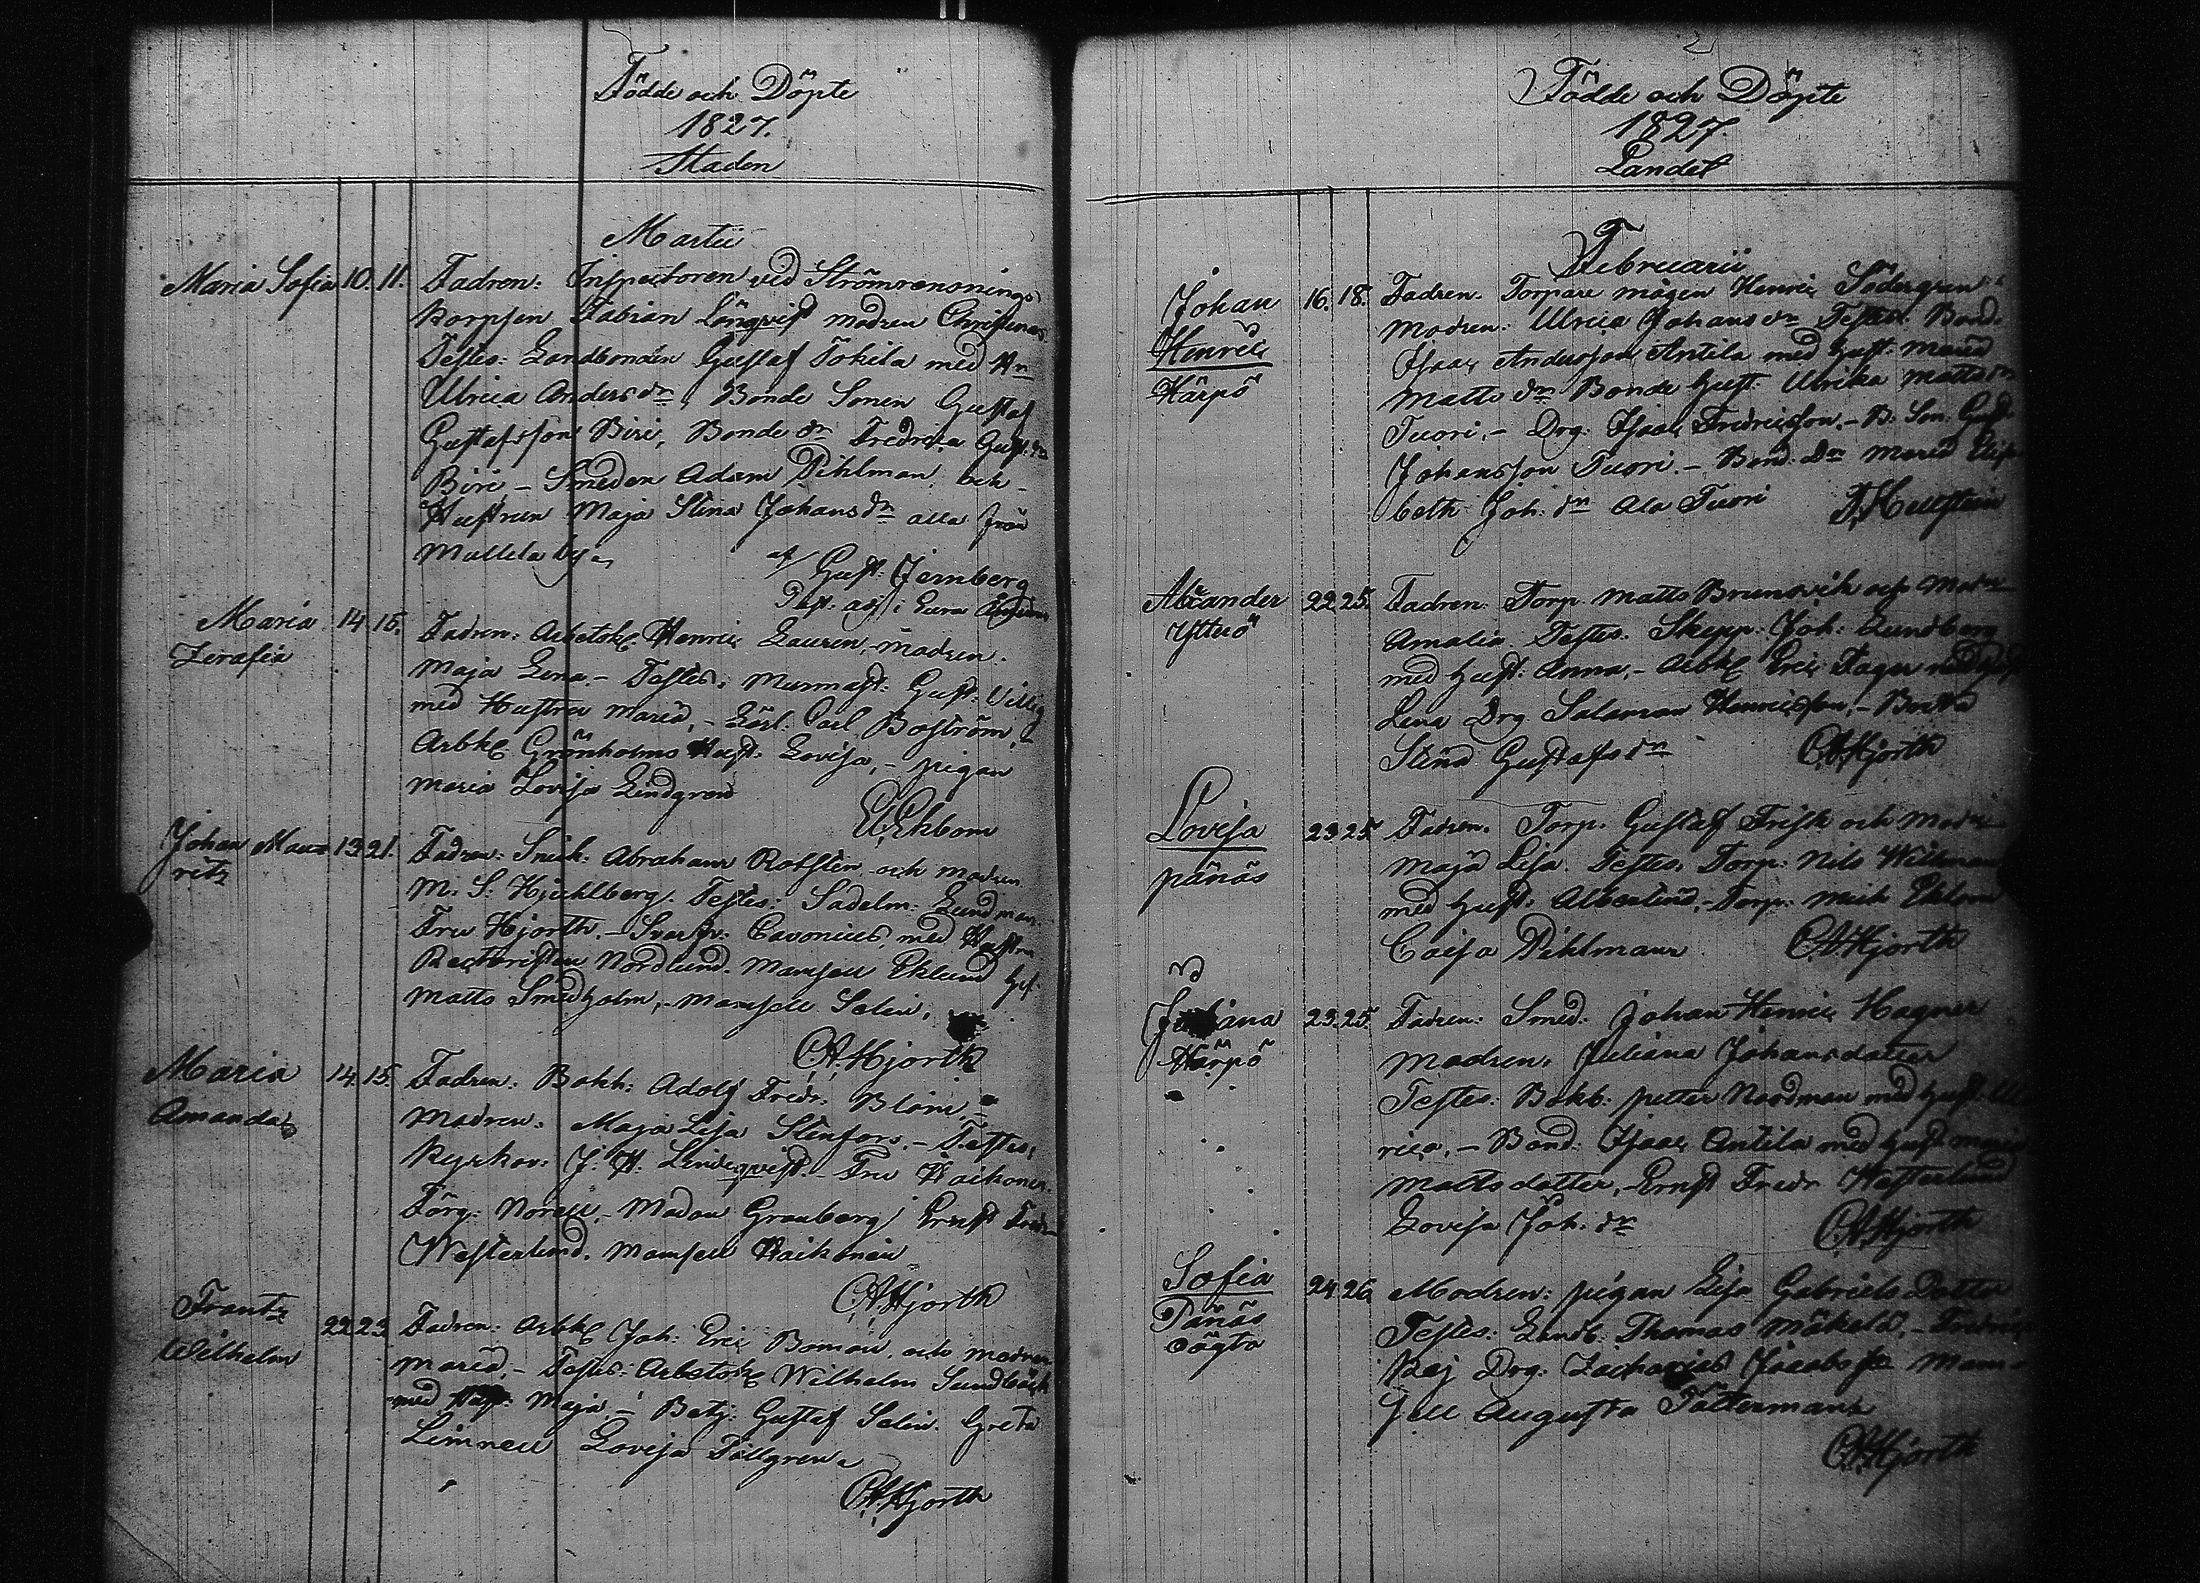 Födde och Döpte
1827.
Staden
Martii
Maria Sofia 10. 11. Fadren: Inspectoren vid Strömrensnings
korpsen Fabian Långqvist modren Christina
Testes: Landbonden Gustaf Tokila med H:n
Ulrica Anders dr, Bonde Sonen Gustaf
Gustafsson Biri, Bonde dr Fredrica Gust: dr
Biri – Smeden Adam Pihlman och
Hustrun Maja Stina Johans dr alla från
Mullila by
af Gust: Jernberg
Past: adj: i Eura
Maria 14. 15. Fadren: Arbetsk. Henric Lauren, modren.
Serafia
Maja Lena. – Testes: Murmäst: Gust: Villig
med Hustru Maria, – Lärl: Carl Boström, –
Arbk. Grönholms Hust: Lovisa, – pigan
Maria Lovisa Lindgren
E. Ekbom
Johan Mau= 13. 21. Fadren: Snick: Abraham Rotsten och modren
ritz
M: S: Hjuhlberg. Testes: Sadelm: Lundman
Fru Hjorth. – Svarfv: Cavonius, med Hustru
Nordlund. Mamsell Eklund Ges:
Matts Smedholm, – Mamsell Salin,
C.A. Hjorth
Maria 14. 15. Fadren: Bokh: Adolf Fredr: Blom, –
Amanda
Modren: Maja Lisa Stenfors. – Testes:
Kyrkov: J: H: Lindeqvist. – Fru Raikonen
Färg: Norell, – Madam Granberg, Ernst Fredr
Westerlund. Mamsell Raikonen
C.A. Hjorth
Frantz 22. 23. Fadren: Arbk. Joh: Eric Boman. och modren
Wilhelm
Maria, – Testes: Arbetsk. Wilhelm Sundbäck
med Hust: Maja – Betj: Gustaf Salin. Greta
Limnell Lovisa Tallgren
C.A. Hjorth
2
Födde och Döpte
1827.
Landet
Februarii
Johan 16. 18. Fadren. Torpare mågen Henric Södergren
Henric
Härpö
Modren: Ulrica Johans dr Testes: Bond.
Isaac Andersson Antila med hust: Maria
Matts dr Bonde hust. Ulrika Matts dr
Tuori. – Drg: Isaac Fredricsson. – B: Son. Gust.
Johansson Tuori. – Bond. Dr Maria Elisa
beth Joh: dr Ala Tuori
F. Hellsten
Alexander 22. 25. Fadren: Torp. Matts Brunsvik och Modr
Ytterö
Amalia. Testes: Skepp: Joh: Lundberg
med hust: Anna, – Arbk. Eric Fager med hust
Lena Drg Salomon Henricsson, – Brita
Stina Gustafs dr
C.A. Hjorth
Lovisa 23. 25. Fadren. Torp. Gustaf Frisk och Modr
pånäs
Maja Lisa. Testes: Torp: Nils Willman
med hust: Albertina, – Torp: Mich Eklom
Caisa Pihlman
C.A. Hjorth
Juliana 23. 25. Fadren: Smed: Johan Henric Hagner
Härpö
Modren: Juliana Johansdatter
Testes: Bokb: petter Nordman med hust: Ul
rica, – Bond: Isaac Antila med hust Maria
Matts datter, – Ernst Fredr Westerlund
Lovisa Joh: dr
C.A. Hjorth
Sofia 24. 26. Modren: pigan Lisa Gabriels Datter
Pånäs
oägta
Testes: Landb: Thomas Mäkelä, – Fredric
Kaj Drg. Zacharias Jacobs sn Mam=
sell Augusta Fältermans
C.A. Hjorth